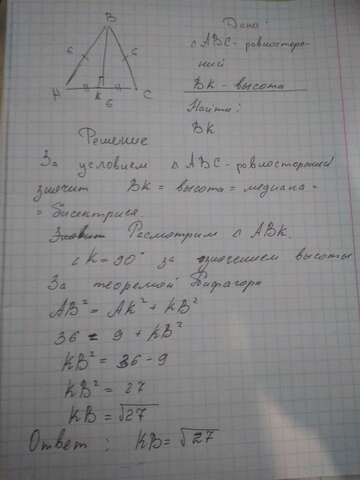 B
Дано:
6 6
△ ABC - ровносторо-
ний
A K C
6
BK - высота
Найти:
BK
Решение
За условием △ ABC - ровносторонний
значит BK = высота = медиана =
= бисектриса
Розсмотрим △ ABK.
∠K = 90° за значением высоты
За теоремой Пифагора
AB² = AK² + KB²
36 = 9 + KB²
KB² = 36 - 9
KB² = 27
KB = √27
Ответ : KB = √27